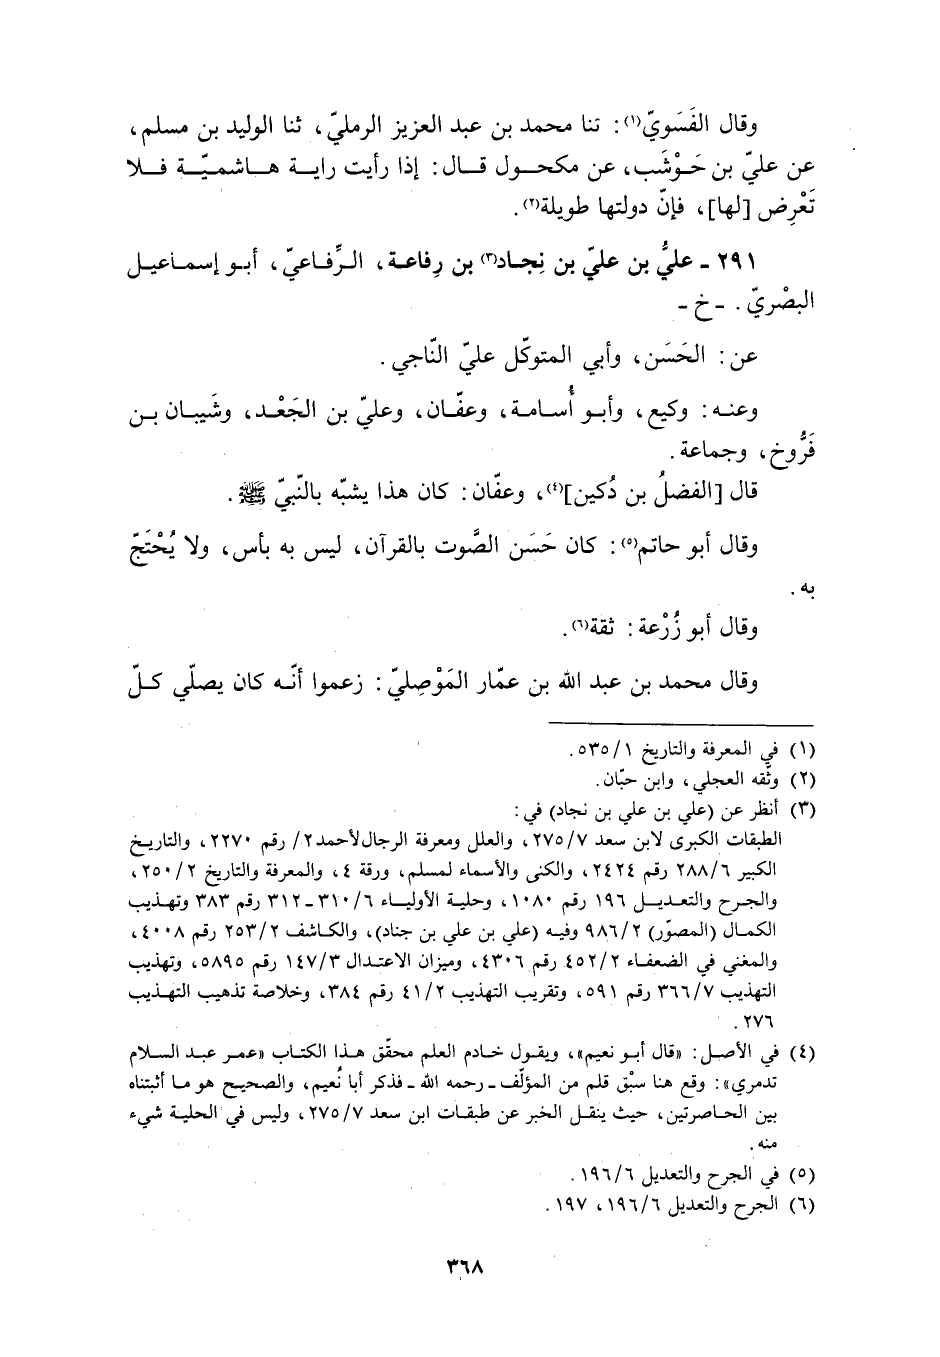 وقال الفَسَويّ(١): ثنا محمد بن عبد العزيز الرمليّ، ثنا الوليد بن مسلم،
عن عليّ بن حَوْشَب، عن مكحول قال: إذا رأيت راية هاشميّة فلا
تَعْرِض [لها]، فإنّ دولتها طويلة(٢).
٢٩١ ـ عليُّ بن عليّ بن نِجاد(٣) بن رِفاعة، الرِّفاعيّ، أبو إسماعيل
البصْريّ. ـ خ ـ
عن: الحَسَن، وأبي المتوكّل عليّ النّاجي.
وعنه: وكيع، وأبو أُسامة، وعفّان، وعليّ بن الجَعْد، وشَيبان بن
فَرُّوخ، وجماعة.
قال [الفضلُ بن دُكين](٤)، وعفّان: كان هذا يشبّه بالنّبيّ ﷺ.
وقال أبو حاتم(٥): كان حَسَن الصَّوت بالقرآن، ليس به بأس، ولا يُحْتَجّ
به.
وقال أبو زُرْعة: ثقة(٦).
وقال محمد بن عبد الله بن عمّار المَوْصِليّ: زعموا أنّه كان يصلّي كلّ
(١) في المعرفة والتاريخ ٥٣٥/١.
(٢) وثّقه العجلي، وابن حبّان.
(٣) أنظر عن (علي بن علي بن نجاد) في:
الطبقات الكبرى لابن سعد ٢٧٥/٧، والعلل ومعرفة الرجال لأحمد ٢/ رقم ٢٢٧٠، والتاريخ
الكبير ٢٨٨/٦ رقم ٢٤٢٤، والكنى والأسماء لمسلم، ورقة ٤، والمعرفة والتاريخ ٢٥٠/٢،
والجرح والتعديل ١٩٦ رقم ١٠٨٠، وحلية الأولياء ٣١٠/٦ ـ ٣١٢ رقم ٣٨٣ وتهذيب
الكمال (المصوّر) ٩٨٦/٢ وفيه (علي بن علي بن جناد)، والكاشف ٢٥٣/٢ رقم ٤٠٠٨،
والمغني في الضعفاء ٤٥٢/٢ رقم ٤٣٠٦، وميزان الاعتدال ١٤٧/٣ رقم ٥٨٩٥، وتهذيب
التهذيب ٣٦٦/٧ رقم ٥٩١، وتقريب التهذيب ٤١/٢ رقم ٣٨٤، وخلاصة تذهيب التهذيب
٢٧٦.
(٤) في الأصل: «قال أبو نعيم»، ويقول خادم العلم محقّق هذا الكتاب «عمر عبد السلام
تدمري»: وقع هنا سبْق قلم من المؤلّف ـ رحمه الله ـ فذكر أبا نُعيم، والصحيح هو ما أثبتناه
بين الحاصرتين، حيث ينقل الخبر عن طبقات ابن سعد ٢٧٥/٧، وليس في الحلية شيء
منه.
(٥) في الجرح والتعديل ١٩٦/٦.
(٦) الجرح والتعديل ١٩٦/٦، ١٩٧.
٣٦٨